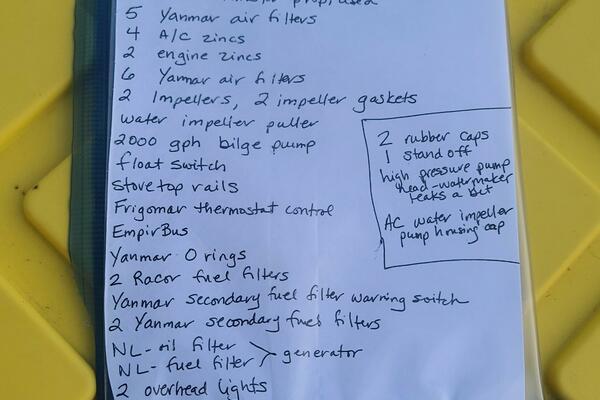 prop, used
5 Yanmar air filters
4 A/C zincs
2 engine zincs
6 Yanmar air filters
2 Impellers, 2 impeller gaskets
water impeller puller
2000 gph bilge pump
float switch
stove top rails
Frigomar thermostat control
EmpirBus
Yanmar O rings
2 Racor fuel filters
Yanmar secondary fuel filter warning switch
2 Yanmar secondary fuel filters
NL- oil filter
NL- fuel filter
generator
2 overhead lights
2 rubber caps
1 stand off
high pressure pump
head-watermaker
leaks a bit
AC water impeller
pump housing cap